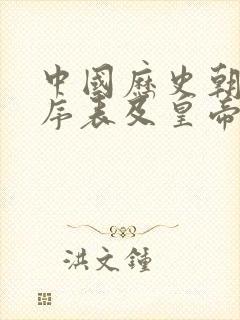 中國歷史朝
序表及皇帝
洪文鐘